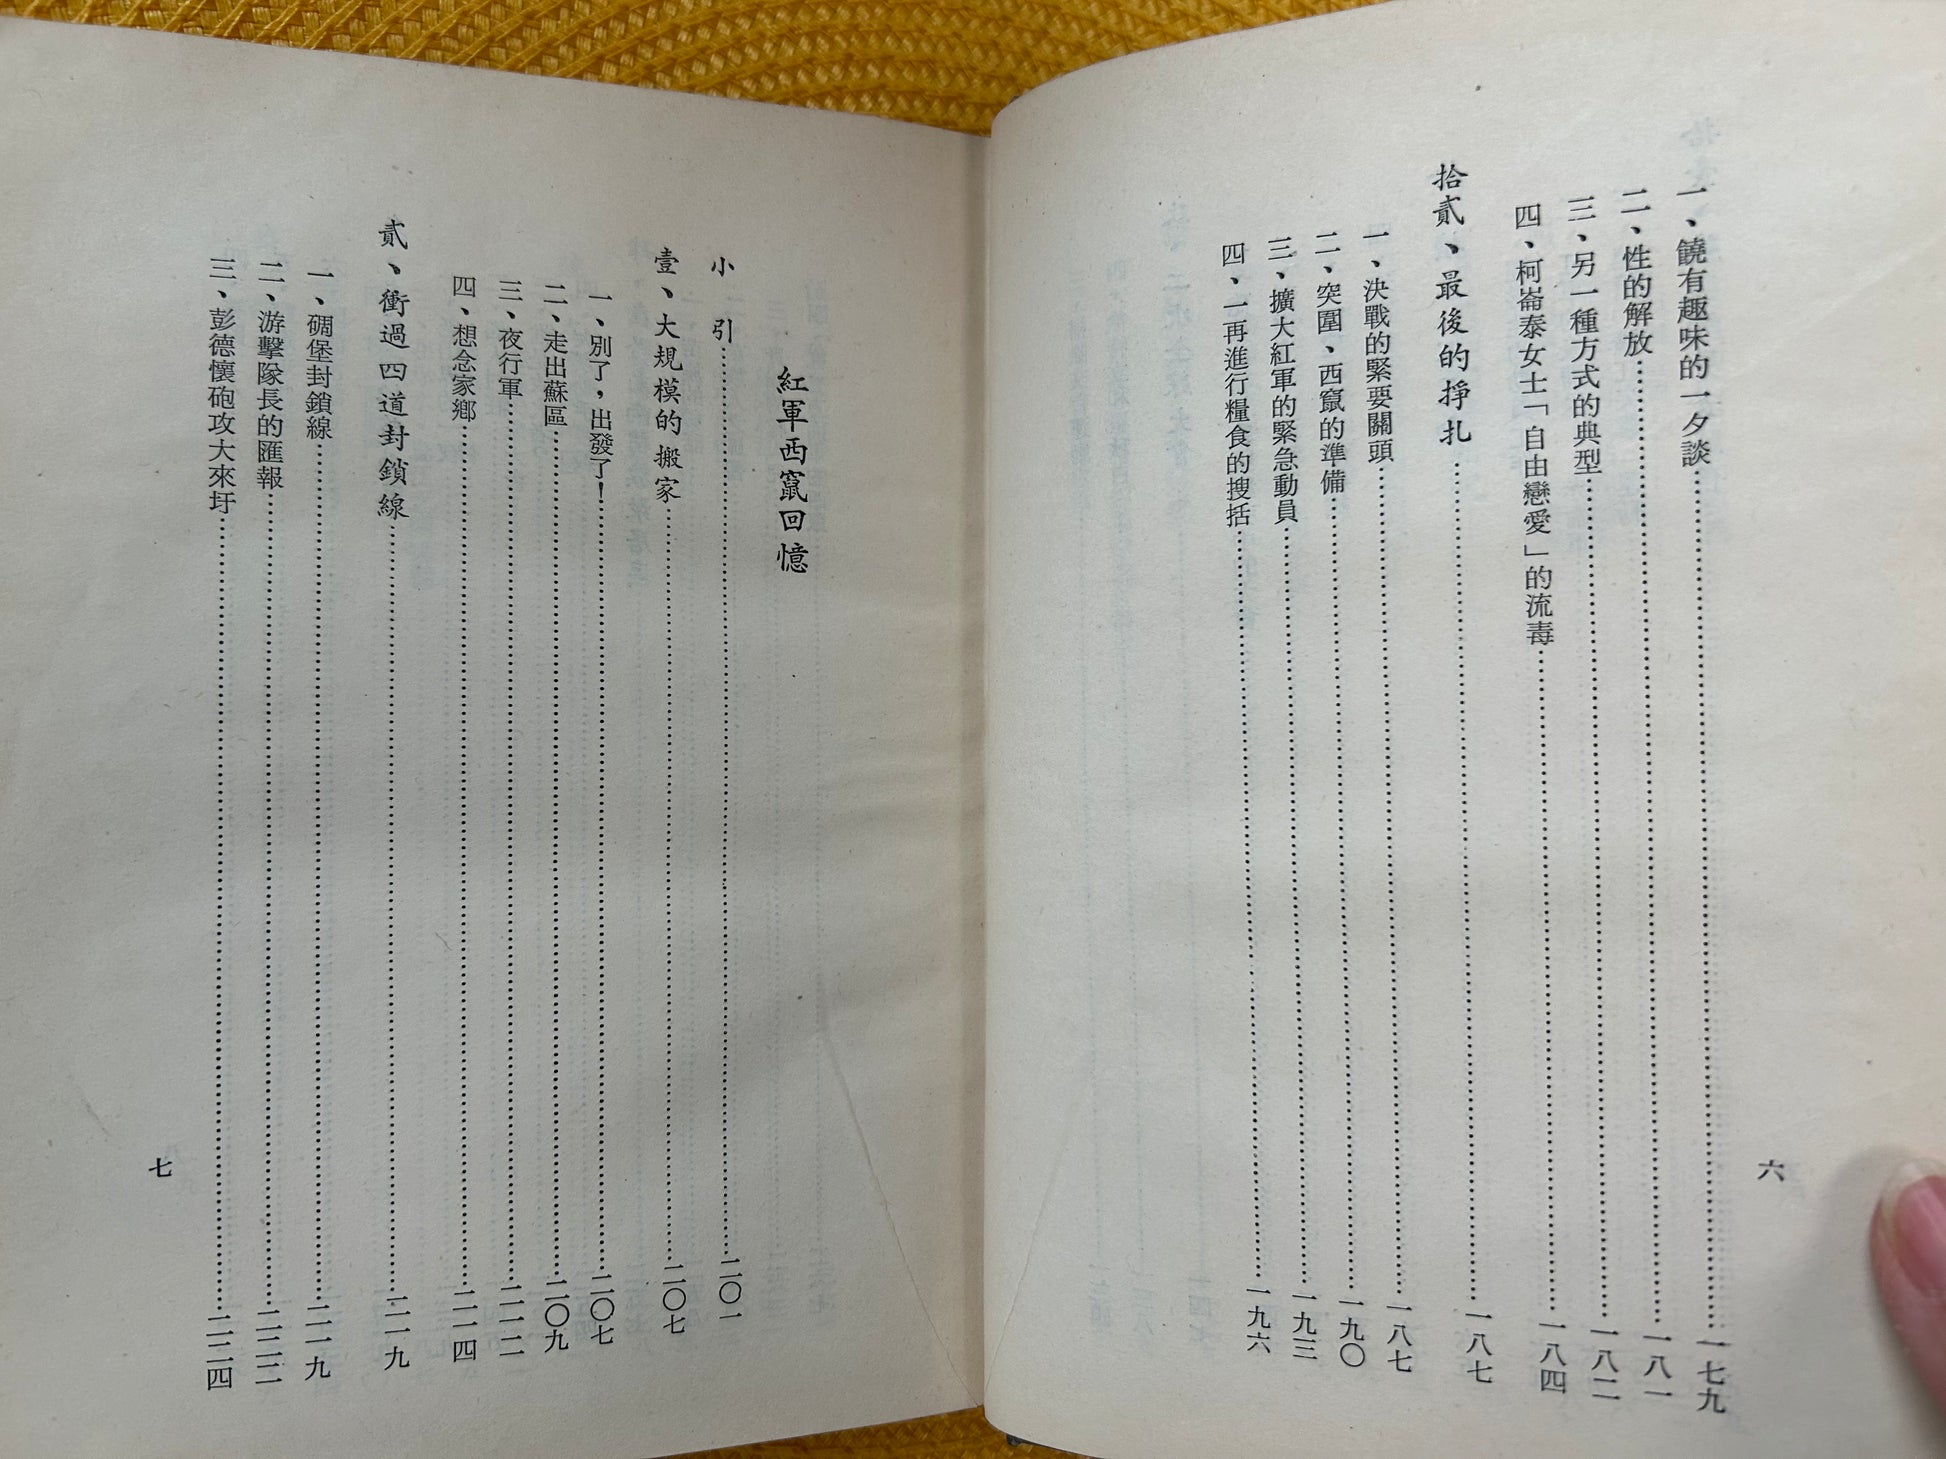 一、饒有趣味的一夕談……一七九
二、性的解放……一八一
三、另一種方式的典型……一八二
四、柯崙泰女士「自由戀愛」的流毒……一八四
拾貳、最後的掙扎……一八七
一、決戰的緊要關頭……一八七
二、突圍、西竄的準備……一九〇
三、擴大紅軍的緊急動員……一九三
四、一再進行糧食的搜括……一九六
六
紅軍西竄回憶
小引……二〇一
壹、大規模的搬家……二〇七
一、別了，出發了！……二〇七
二、走出蘇區……二〇九
三、夜行軍……二一二
四、想念家鄉……二一四
貳、衝過四道封鎖線……二一九
一、碉堡封鎖線……二一九
二、游擊隊長的匯報……二二二
三、彭德懷砲攻大來圩……二二四
七